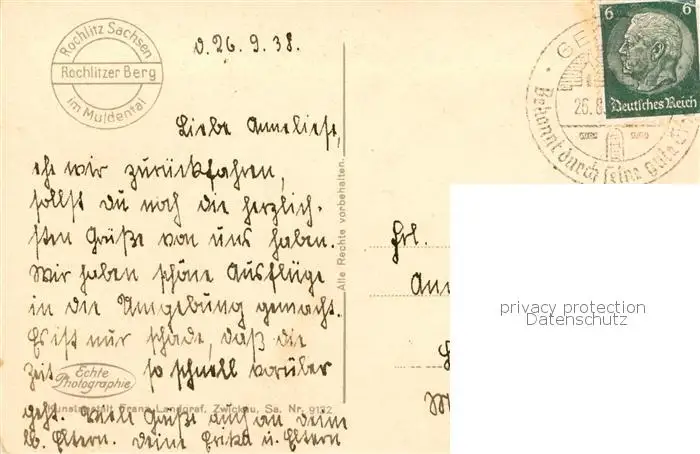 Rochlitz Sachsen
Rochlitzer Berg
im Muldental
d. 26. 9. 38.
Liebe Anneliese,
ehe wir zurückfahren,
sollst du noch die herzlich-
sten Grüße von uns haben.
Wir haben schöne Ausflüge
in die Umgebung gemacht.
Es ist nur schade, daß die
Zeit so schnell vorüber
geht. Viele Grüße auch an deine
lb. Eltern. Deine Erika u. Eltern
Echte
Photographie
Kunstanstalt Franz Landgraf, Zwickau, Sa. Nr. 9132
Alle Rechte vorbehalten.
6 6
Deutsches Reich
Bekannt durch seine gute
Frl.
privacy protection
Datenschutz